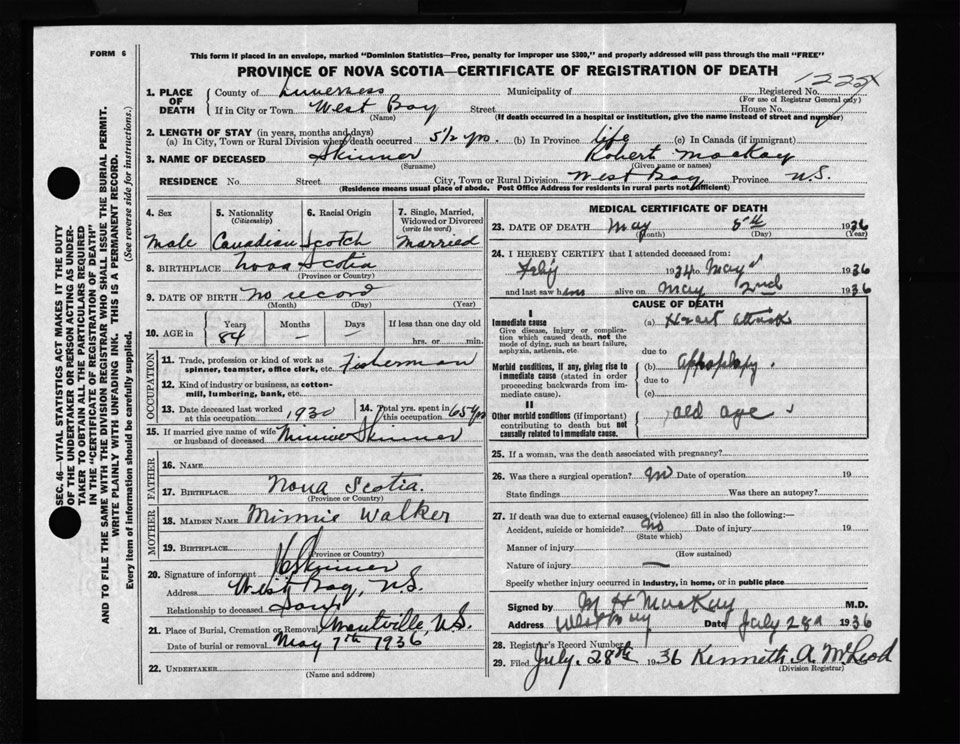 FORM 6
This form if placed in an envelope, marked "Dominion Statistics—Free, penalty for improper use $300," and properly addressed will pass through the mail "FREE"
PROVINCE OF NOVA SCOTIA—CERTIFICATE OF REGISTRATION OF DEATH
SEC. 46—VITAL STATISTICS ACT MAKES IT THE DUTY
OF THE UNDERTAKER OR PERSON ACTING AS UNDER-
TAKER TO OBTAIN ALL THE PARTICULARS REQUIRED
IN THE "CERTIFICATE OF REGISTRATION OF DEATH"
AND TO FILE THE SAME WITH THE DIVISION REGISTRAR WHO SHALL ISSUE THE BURIAL PERMIT.
WRITE PLAINLY WITH UNFADING INK. THIS IS A PERMANENT RECORD.
Every item of information should be carefully supplied. (See reverse side for instructions.)
1. PLACE OF DEATH County of Inverness Municipality of Registered No.
(For use of Registrar General only)
If in City or Town West Bay Street House No.
(Name) (If death occurred in a hospital or institution, give the name instead of street and number)
2. LENGTH OF STAY (in years, months and days)
(a) In City, Town or Rural Division where death occurred 51/2 yrs. (b) In Province life (c) In Canada (if immigrant)
3. NAME OF DECEASED Skinner Robert MacKay
(Surname) (Given name or names)
RESIDENCE No. Street City, Town or Rural Division West Bay Province N.S.
(Residence means usual place of abode. Post Office Address for residents in rural parts not sufficient)
4. Sex
Male
5. Nationality
(Citizenship)
Canadian
6. Racial Origin
Scotch
7. Single, Married,
Widowed or Divorced
(write the word)
Married
8. BIRTHPLACE Nova Scotia
(Province or Country)
9. DATE OF BIRTH no record
(Month) (Day) (Year)
10. AGE in Years Months Days If less than one day old
84 — — hrs. or min.
OCCUPATION
11. Trade, profession or kind of work as
spinner, teamster, office clerk, etc. Fisherman
12. Kind of industry or business, as cotton-
mill, lumbering, bank, etc.
13. Date deceased last worked
at this occupation 1930
14. Total yrs. spent in
this occupation 65 yrs
15. If married give name of wife
or husband of deceased Skinner
FATHER
16. NAME
17. BIRTHPLACE Nova Scotia.
(Province or Country)
MOTHER
18. MAIDEN NAME Minnie Walker
19. BIRTHPLACE
(Province or Country)
20. Signature of informant Skinner
Address West Bay, N.S.
Relationship to deceased Son
21. Place of Burial, Cremation or Removal N.S.
Date of burial or removal May 7th 1936
22. UNDERTAKER
(Name and address)
MEDICAL CERTIFICATE OF DEATH
23. DATE OF DEATH May 5th 1936
(Month) (Day) (Year)
24. I HEREBY CERTIFY that I attended deceased from:
1934 to May 1936
and last saw him alive on May 2nd 1936
CAUSE OF DEATH
I
Immediate cause
Give disease, injury or complica-
tion which caused death, not the
mode of dying, such as heart failure,
asphyxia, asthenia, etc.
(a) Heart attack
due to
Morbid conditions, if any, giving rise to
immediate cause (stated in order
proceeding backwards from im-
mediate cause).
(b) Appoplexy.
due to
(c)
II
Other morbid conditions (if important)
contributing to death but not
causally related to immediate cause.
old age
25. If a woman, was the death associated with pregnancy?
26. Was there a surgical operation? no Date of operation 19
State findings Was there an autopsy?
27. If death was due to external causes (violence) fill in also the following:—
Accident, suicide or homicide? no Date of injury 19
(State which)
Manner of injury
(How sustained)
Nature of injury —
Specify whether injury occurred in industry, in home, or in public place
Signed by M H MacKay M.D.
Address West Bay Date July 28 1936
28. Registrar's Record Number
29. Filed July. 28th 1936 Kenneth A. McLeod
(Division Registrar)